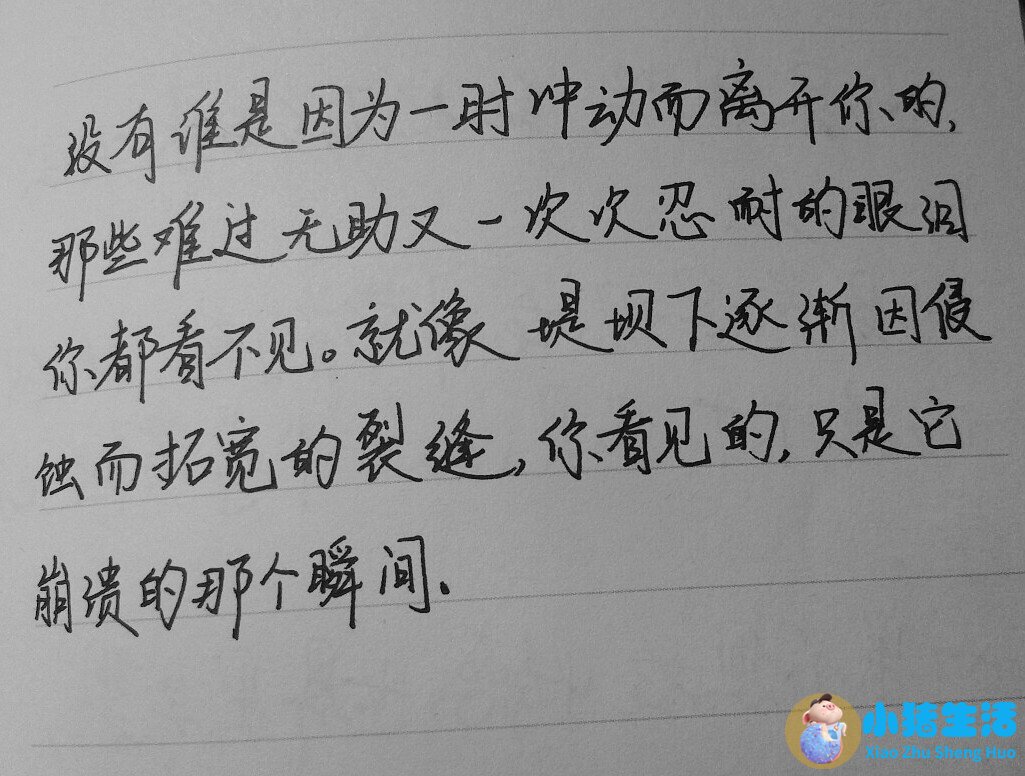 没有谁是因为一时冲动而离开你的,
那些难过无助又一次次忍耐的眼泪
你都看不见。就像堤坝下逐渐因侵
蚀而拓宽的裂缝,你看见的,只是它
崩溃的那个瞬间.
小猪生活
Xiao Zhu Sheng Huo